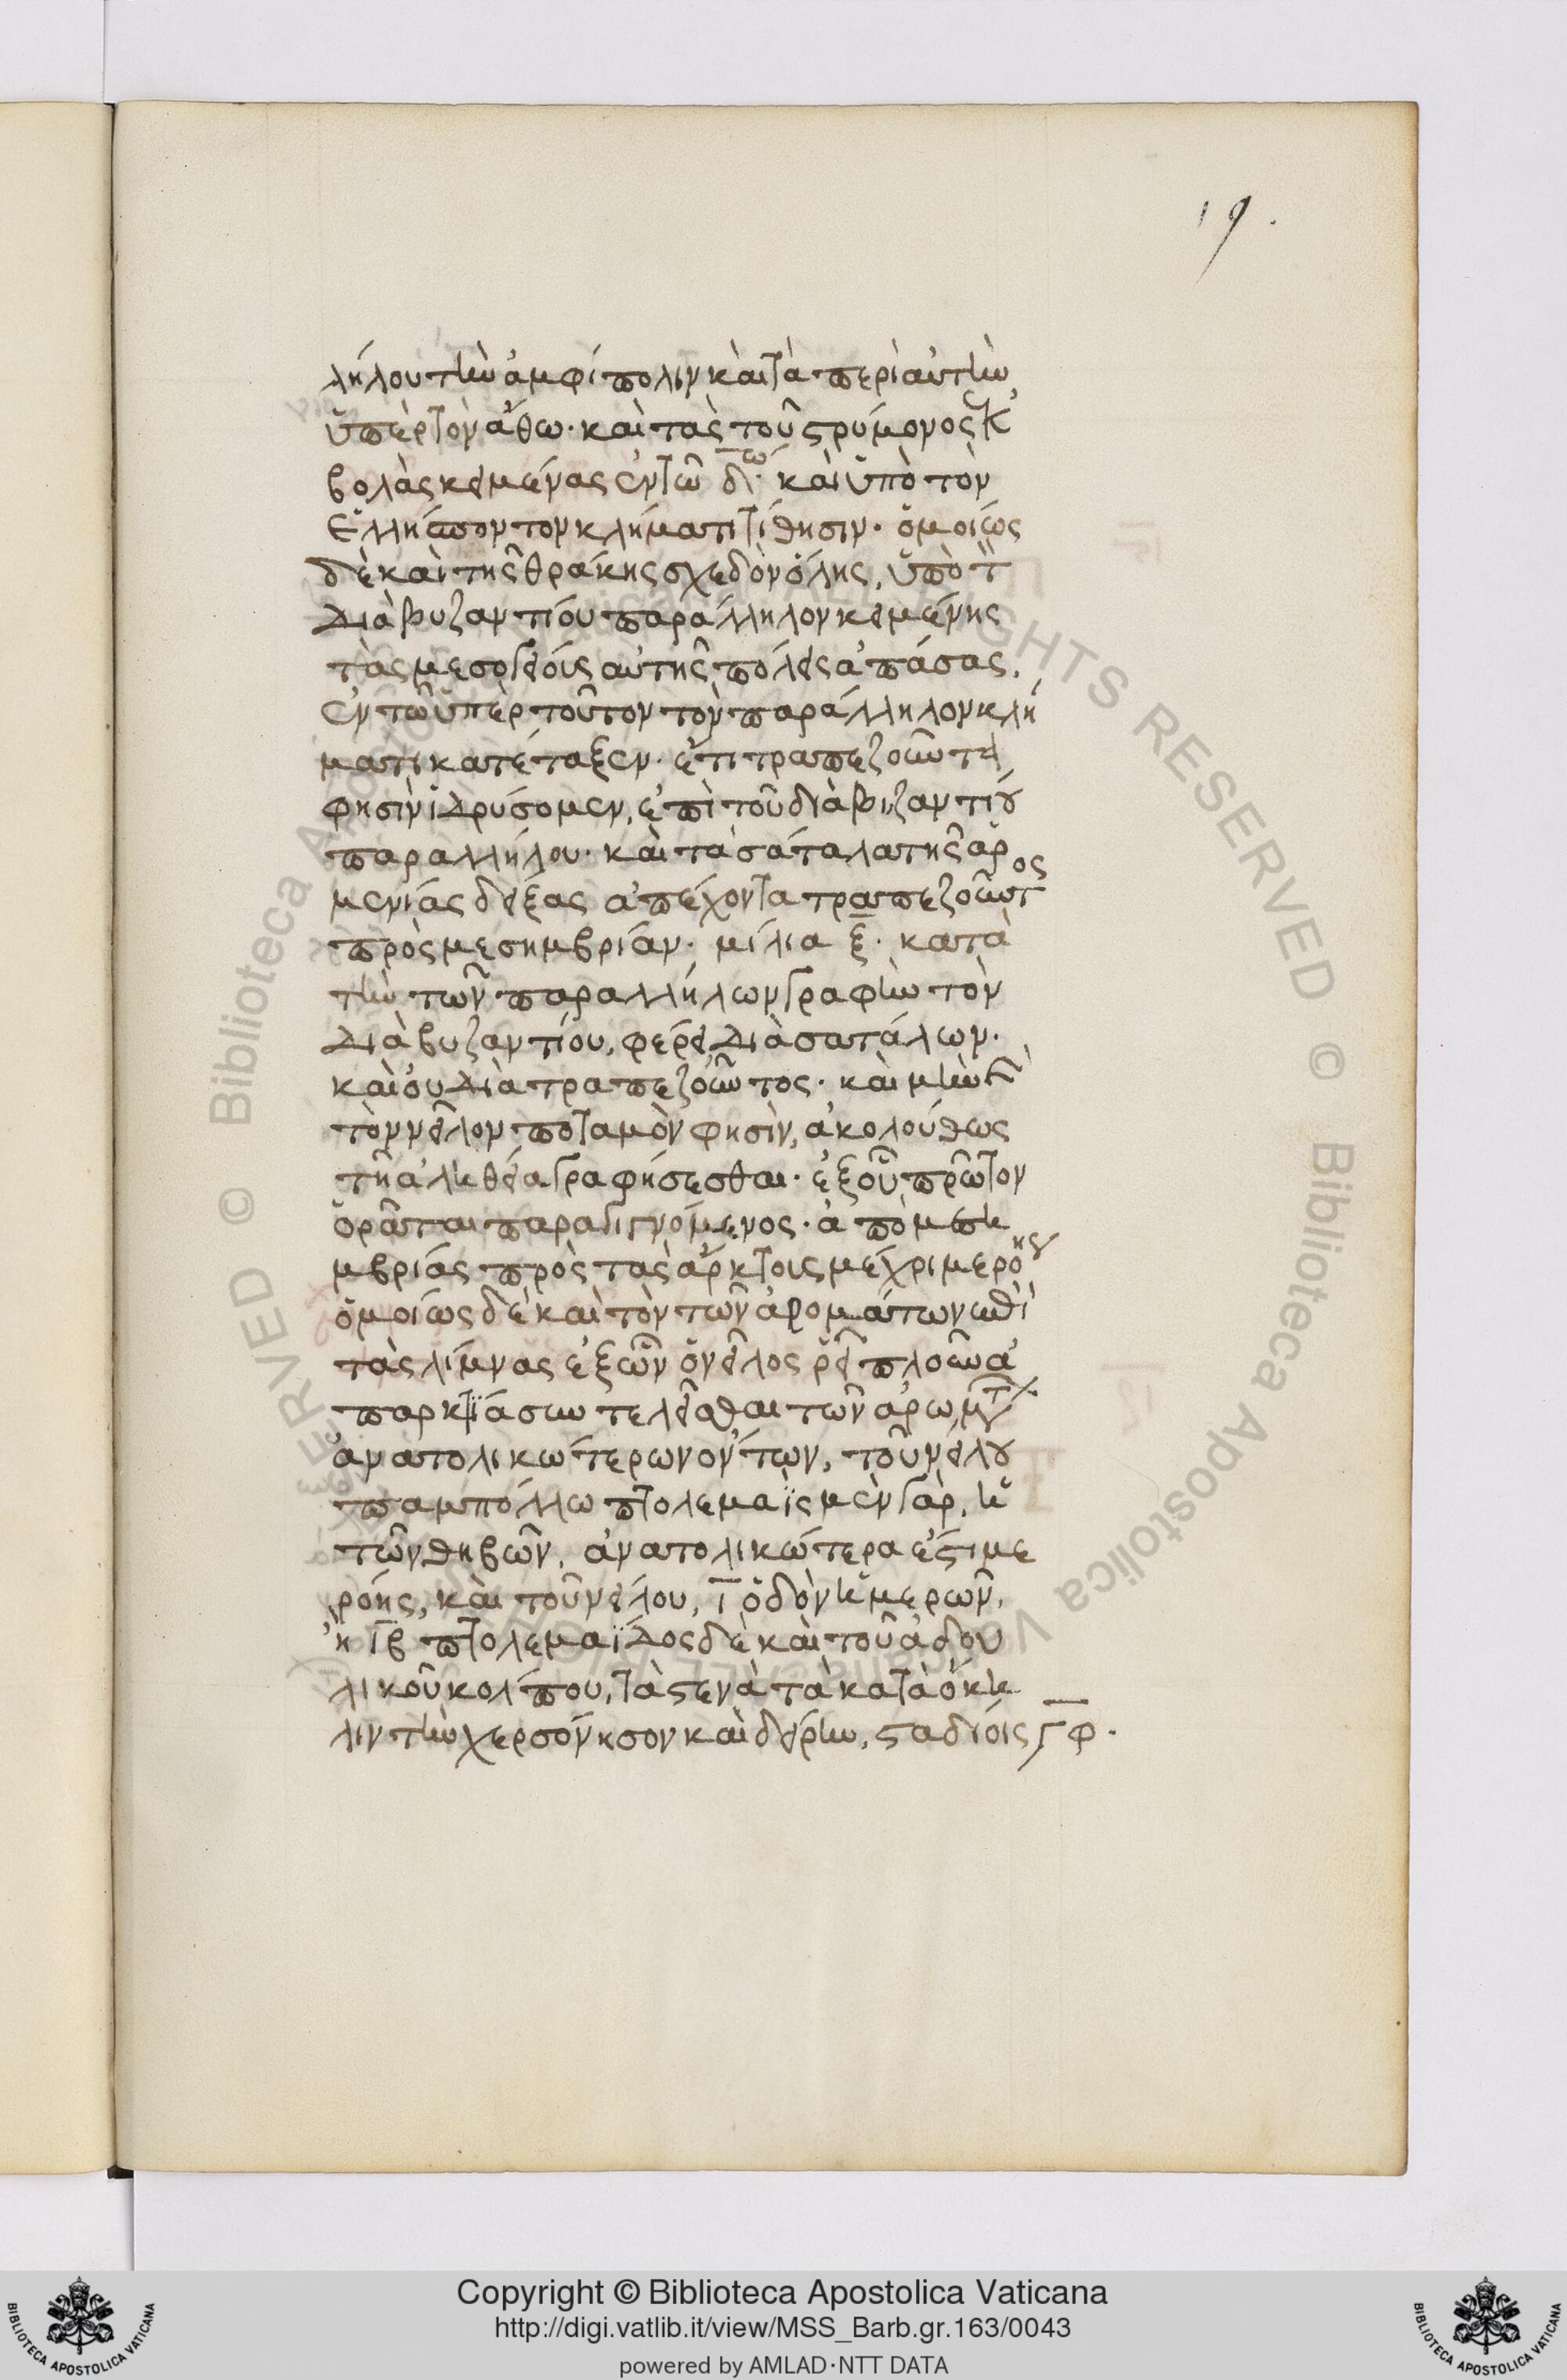 19.
λήλου τὴν ἀμφίπολιν καὶ τὰ περὶ αὐτὴν
ὑπὲρ τὸν ἄθω· καὶ τὰς τοῦ στρύμονος ἐκ
βολὰς κειμένας ἐν τῶ δ̅ω· καὶ ὑπὸ τὸν
ἑλλήσποντον κλήματι τίθησιν· ὁμοίως
δὲ καὶ τῆς θράκης σχεδὸν ὅλης, ὑπὸ τ
διὰ βυζαντίου παράλληλον κειμένης
τὰς μεσογείους αὐτῆς πόλεις ἁπάσας,
ἐν τῶ ὑπὲρ τοῦτον τὸν παράλληλον κλή
ματι κατέταξεν· ἔτι τραπεζοῦντα
φησὶν ἱδρύσομεν, ἐπὶ τοῦ διὰ βυζαντίου
παραλλήλου· καὶ τὰ σάταλα τῆς ἀρ
μενίας δείξας ἀπέχοντα τραπεζοῦντος
πρὸς μεσημβρίαν· μίλια ξ̅· κατὰ
τὴν τῶν παραλλήλων γραφὴν τὸν
διὰ βυζαντίου, φέρει διὰ σατάλων·
καὶ οὐ διὰ τραπεζοῦντος· καὶ μὴν
τὸν νεῖλον ποταμὸν φησὶν, ἀκολούθως
τῆ ἀληθεία γραφήσεσθαι· ἐξ οὗ πρῶτον
ὁρᾶται παραγιγνόμενος· ἀπὸ μεση
μβρίας πρὸς τὰς ἄρκτους μέχρι μερόης
ὁμοίως δὲ καὶ τὸν τῶν ἀρομάτων ἐπὶ
τὰς λίμνας ἐξ ὧν ὁ νεῖλος ῥεῖ πλοῦν ἀ
παρκτίασιν τελεῖσθαι τῶν ἀρωμάτων
ἀνατολικωτέρων ὄντων, τοῦ νείλου
παμπόλλω πτολεμαῒς μὲν γὰρ, ἡ
τῶν θηβῶν, ἀνατολικωτέρα ἐστὶ με
ρόης, καὶ τοῦ νείλου, ι̅ ὁδὸν ἡμερῶν,
ἢ ι̅β̅ πτολεμαΐδος δὲ καὶ τοῦ ἀδου
λικοῦ κολπου, τὰ στενὰ τὰ κατὰ ὄκη
λιν τὴν χερσόνησον καὶ δείρην, σταδίοις ͵γφ̅·
Copyright © Biblioteca Apostolica Vaticana
http://digi.vatlib.it/view/MSS_Barb.gr.163/0043
powered by AMLAD·NTT DATA